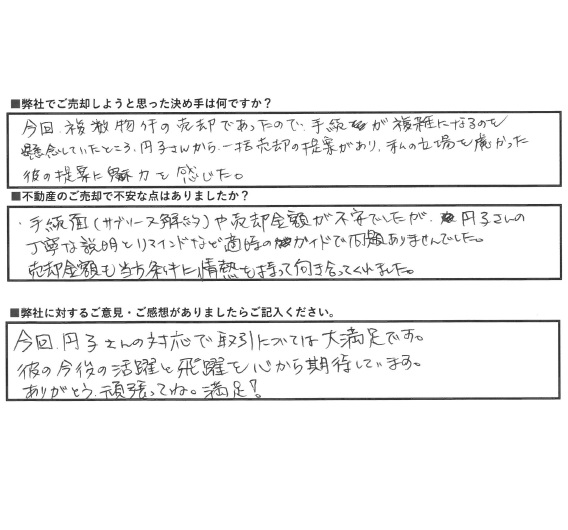 ■弊社でご売却しようと思った決め手は何ですか？
今回、複数物件の売却であったので、手続きが複雑になるのを
懸念していたところ、円子さんから、一括売却の提案があり、私の立場を慮かった
彼の提案に魅力を感じた。
■不動産のご売却で不安な点はありましたか？
・手続面(サブリース解約)や売却金額が不安でしたが、円子さんの
丁寧な説明とリマインドなど適時のガイドで問題ありませんでした。
売却金額も当方条件に情熱を持って向き合ってくれました。
■弊社に対するご意見・ご感想がありましたらご記入ください。
今回、円子さんの対応で取引については大満足です。
彼の今後の活躍と飛躍を心から期待しています。
ありがとう、頑張ってね。満足！